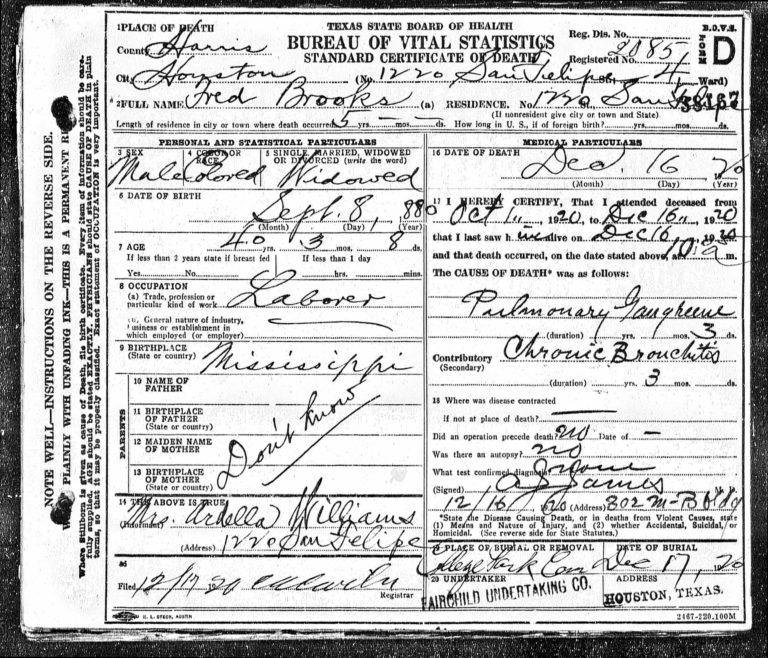 TEXAS STATE BOARD OF HEALTH
BUREAU OF VITAL STATISTICS
STANDARD CERTIFICATE OF DEATH
B.O.V.S.
FORM D
1 PLACE OF DEATH
County Harris
Reg. Dis. No.
Registered No. 2085
City Houston (No. 1220 San Felipe St., 4 Ward)
2 FULL NAME Fred Brooks (a) RESIDENCE. No. 1220 San
38167
(If nonresident give city or town and State)
Length of residence in city or town where death occurred 5 yrs. — mos. ds. How long in U. S., if of foreign birth? yrs. mos. ds.
PERSONAL AND STATISTICAL PARTICULARS
3 SEX 4 COLOR OR RACE 5 SINGLE, MARRIED, WIDOWED OR DIVORCED (write the word)
Male Colored Widowed
6 DATE OF BIRTH
Sept. 8, 1880
(Month) (Day) (Year)
7 AGE 40 yrs. 3 mos. 8 ds.
If less than 2 years state if breast fed If less than 1 day
Yes No hrs. mins.
8 OCCUPATION
(a) Trade, profession or particular kind of work Laborer
General nature of industry, business or establishment in which employed (or employer)
9 BIRTHPLACE
(State or country) Mississippi
PARENTS
10 NAME OF FATHER
11 BIRTHPLACE OF FATHER
(State or country)
12 MAIDEN NAME OF MOTHER
13 BIRTHPLACE OF MOTHER
(State or country)
Don't Know
14 THE ABOVE IS TRUE
(Informant) Mrs. Ardella Williams
(Address) 1220 San Felipe
Filed 12/17 20
Registrar
MEDICAL PARTICULARS
16 DATE OF DEATH
Dec. 16 1920
(Month) (Day) (Year)
17 I HEREBY CERTIFY, That I attended deceased from
Oct 1, 1920, to Dec 16, 1920
that I last saw him alive on Dec 16, 1920
and that death occurred, on the date stated above, at 10 a m.
The CAUSE OF DEATH* was as follows:
Pulmonary Gangreene
(duration) yrs. mos. 3 ds.
Contributory Chronic Bronchitis
(Secondary)
(duration) yrs. 3 mos. ds.
18 Where was disease contracted
If not at place of death? —
Did an operation precede death? no Date of —
Was there an autopsy? no
What test confirmed diagnosis? none
(Signed) James
12/16, 1920 (Address) 302 M-B Bldg
*State the Disease Causing Death, or in deaths from Violent Causes, state (1) Means and Nature of Injury, and (2) whether Accidental, Suicidal, or Homicidal. (See reverse side for State Statutes.)
19 PLACE OF BURIAL OR REMOVAL DATE OF BURIAL
Park Cem Dec 17, 1920
20 UNDERTAKER ADDRESS
FAIRCHILD UNDERTAKING CO. HOUSTON, TEXAS.
E. L. STECK, AUSTIN
2467-220.100M
NOTE WELL—INSTRUCTIONS ON THE REVERSE SIDE.
PLAINLY WITH UNFADING INK—THIS IS A PERMANENT
Where Stillborn is given as cause of Death, file birth certificate. Every item of information should be carefully supplied. AGE should be stated EXACTLY. PHYSICIANS should state CAUSE OF DEATH in plain terms, so that it may be properly classified. Exact statement of OCCUPATION is very important.